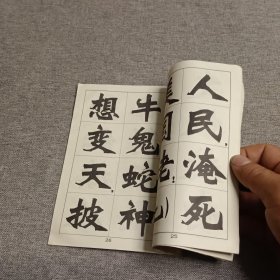 人民，淹死
老，
25
牛鬼蛇神
想变天，披
26